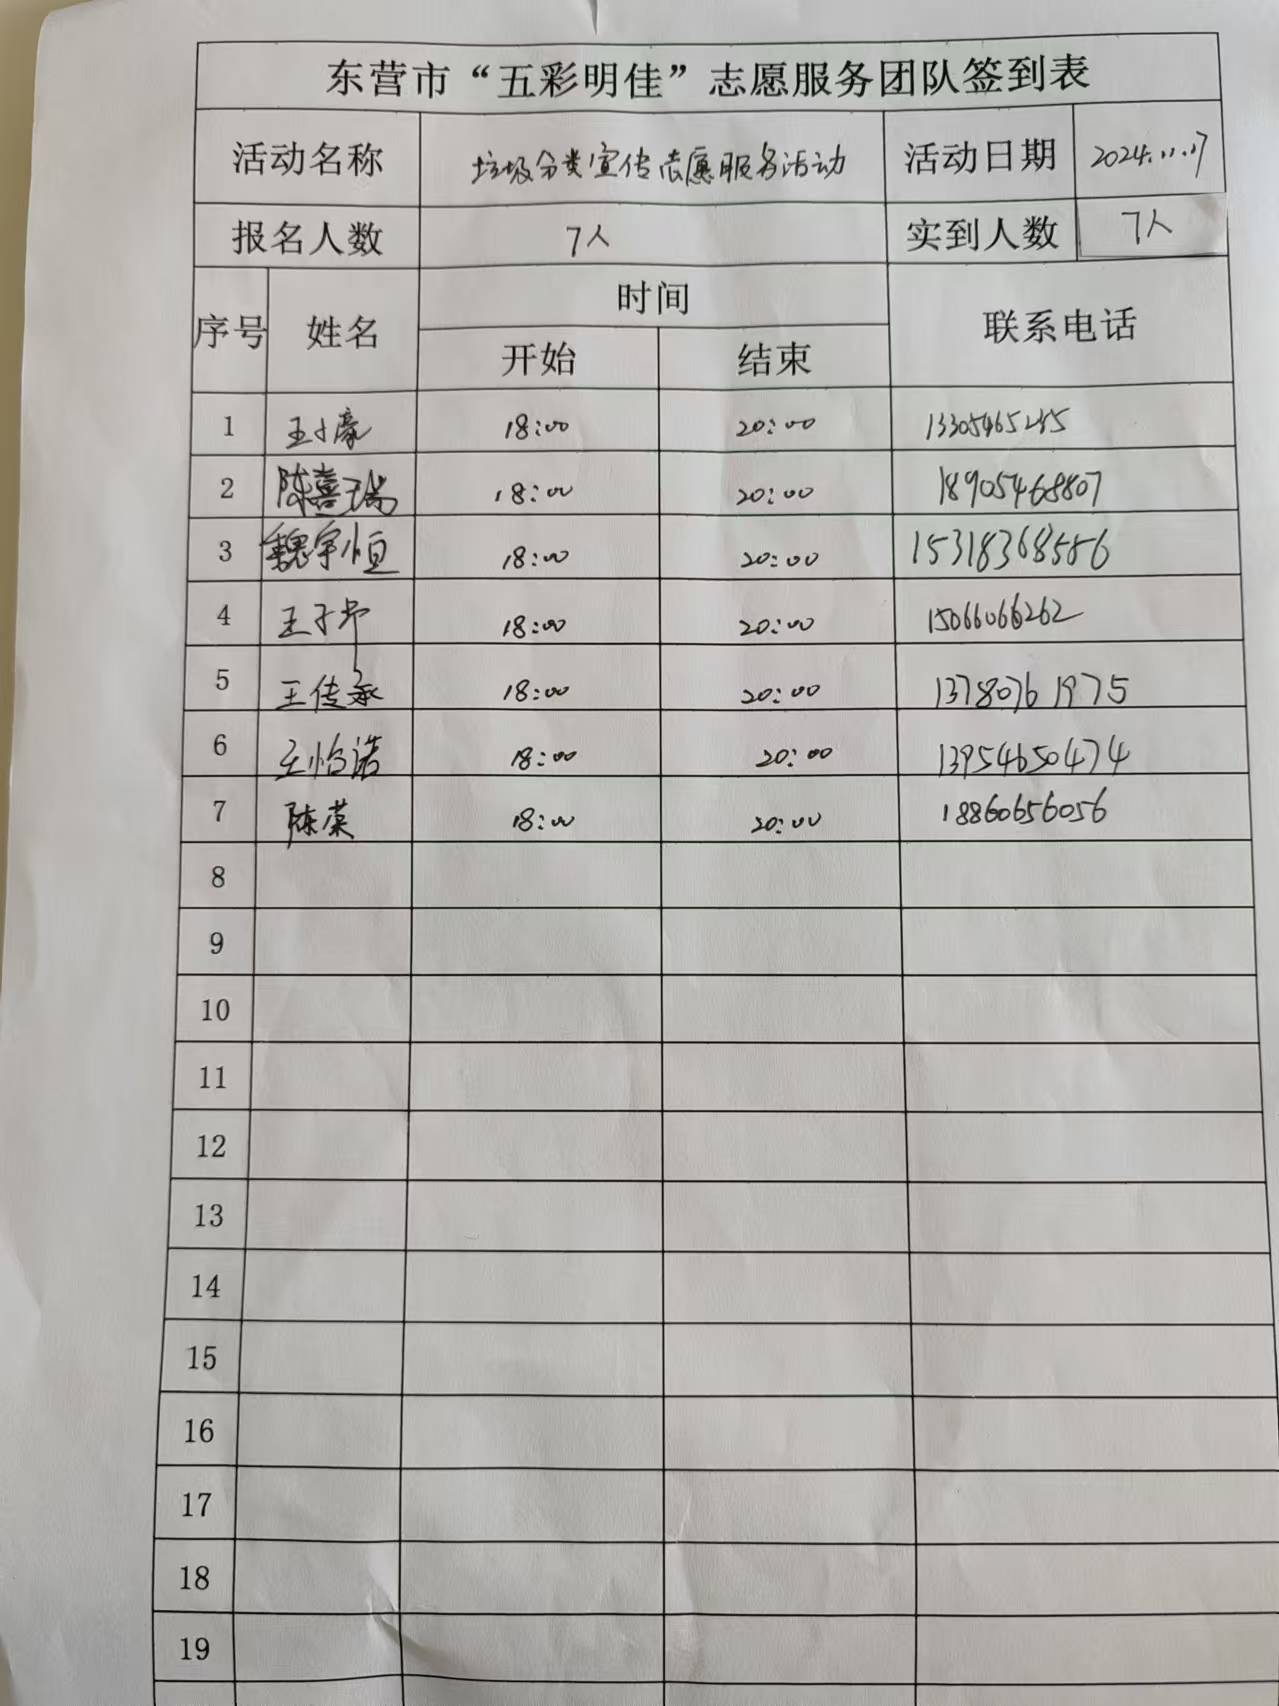 东营市“五彩明佳”志愿服务团队签到表
活动名称 垃圾分类宣传志愿服务活动 活动日期 2024.11.17
报名人数 7人 实到人数 7人
序号 姓名 时间 联系电话
开始 结束
1 王子豪 18:00 20:00
2 陈喜瑞 18:00 20:00 18905468807
3 魏宇恒 18:00 20:00 15318368586
4 王子 18:00 20:00 15066066262
5 王传承 18:00 20:00 13780761975
6 王怡诺 18:00 20:00 13954650474
7 陈荣 18:00 20:00 18860656056
8
9
10
11
12
13
14
15
16
17
18
19